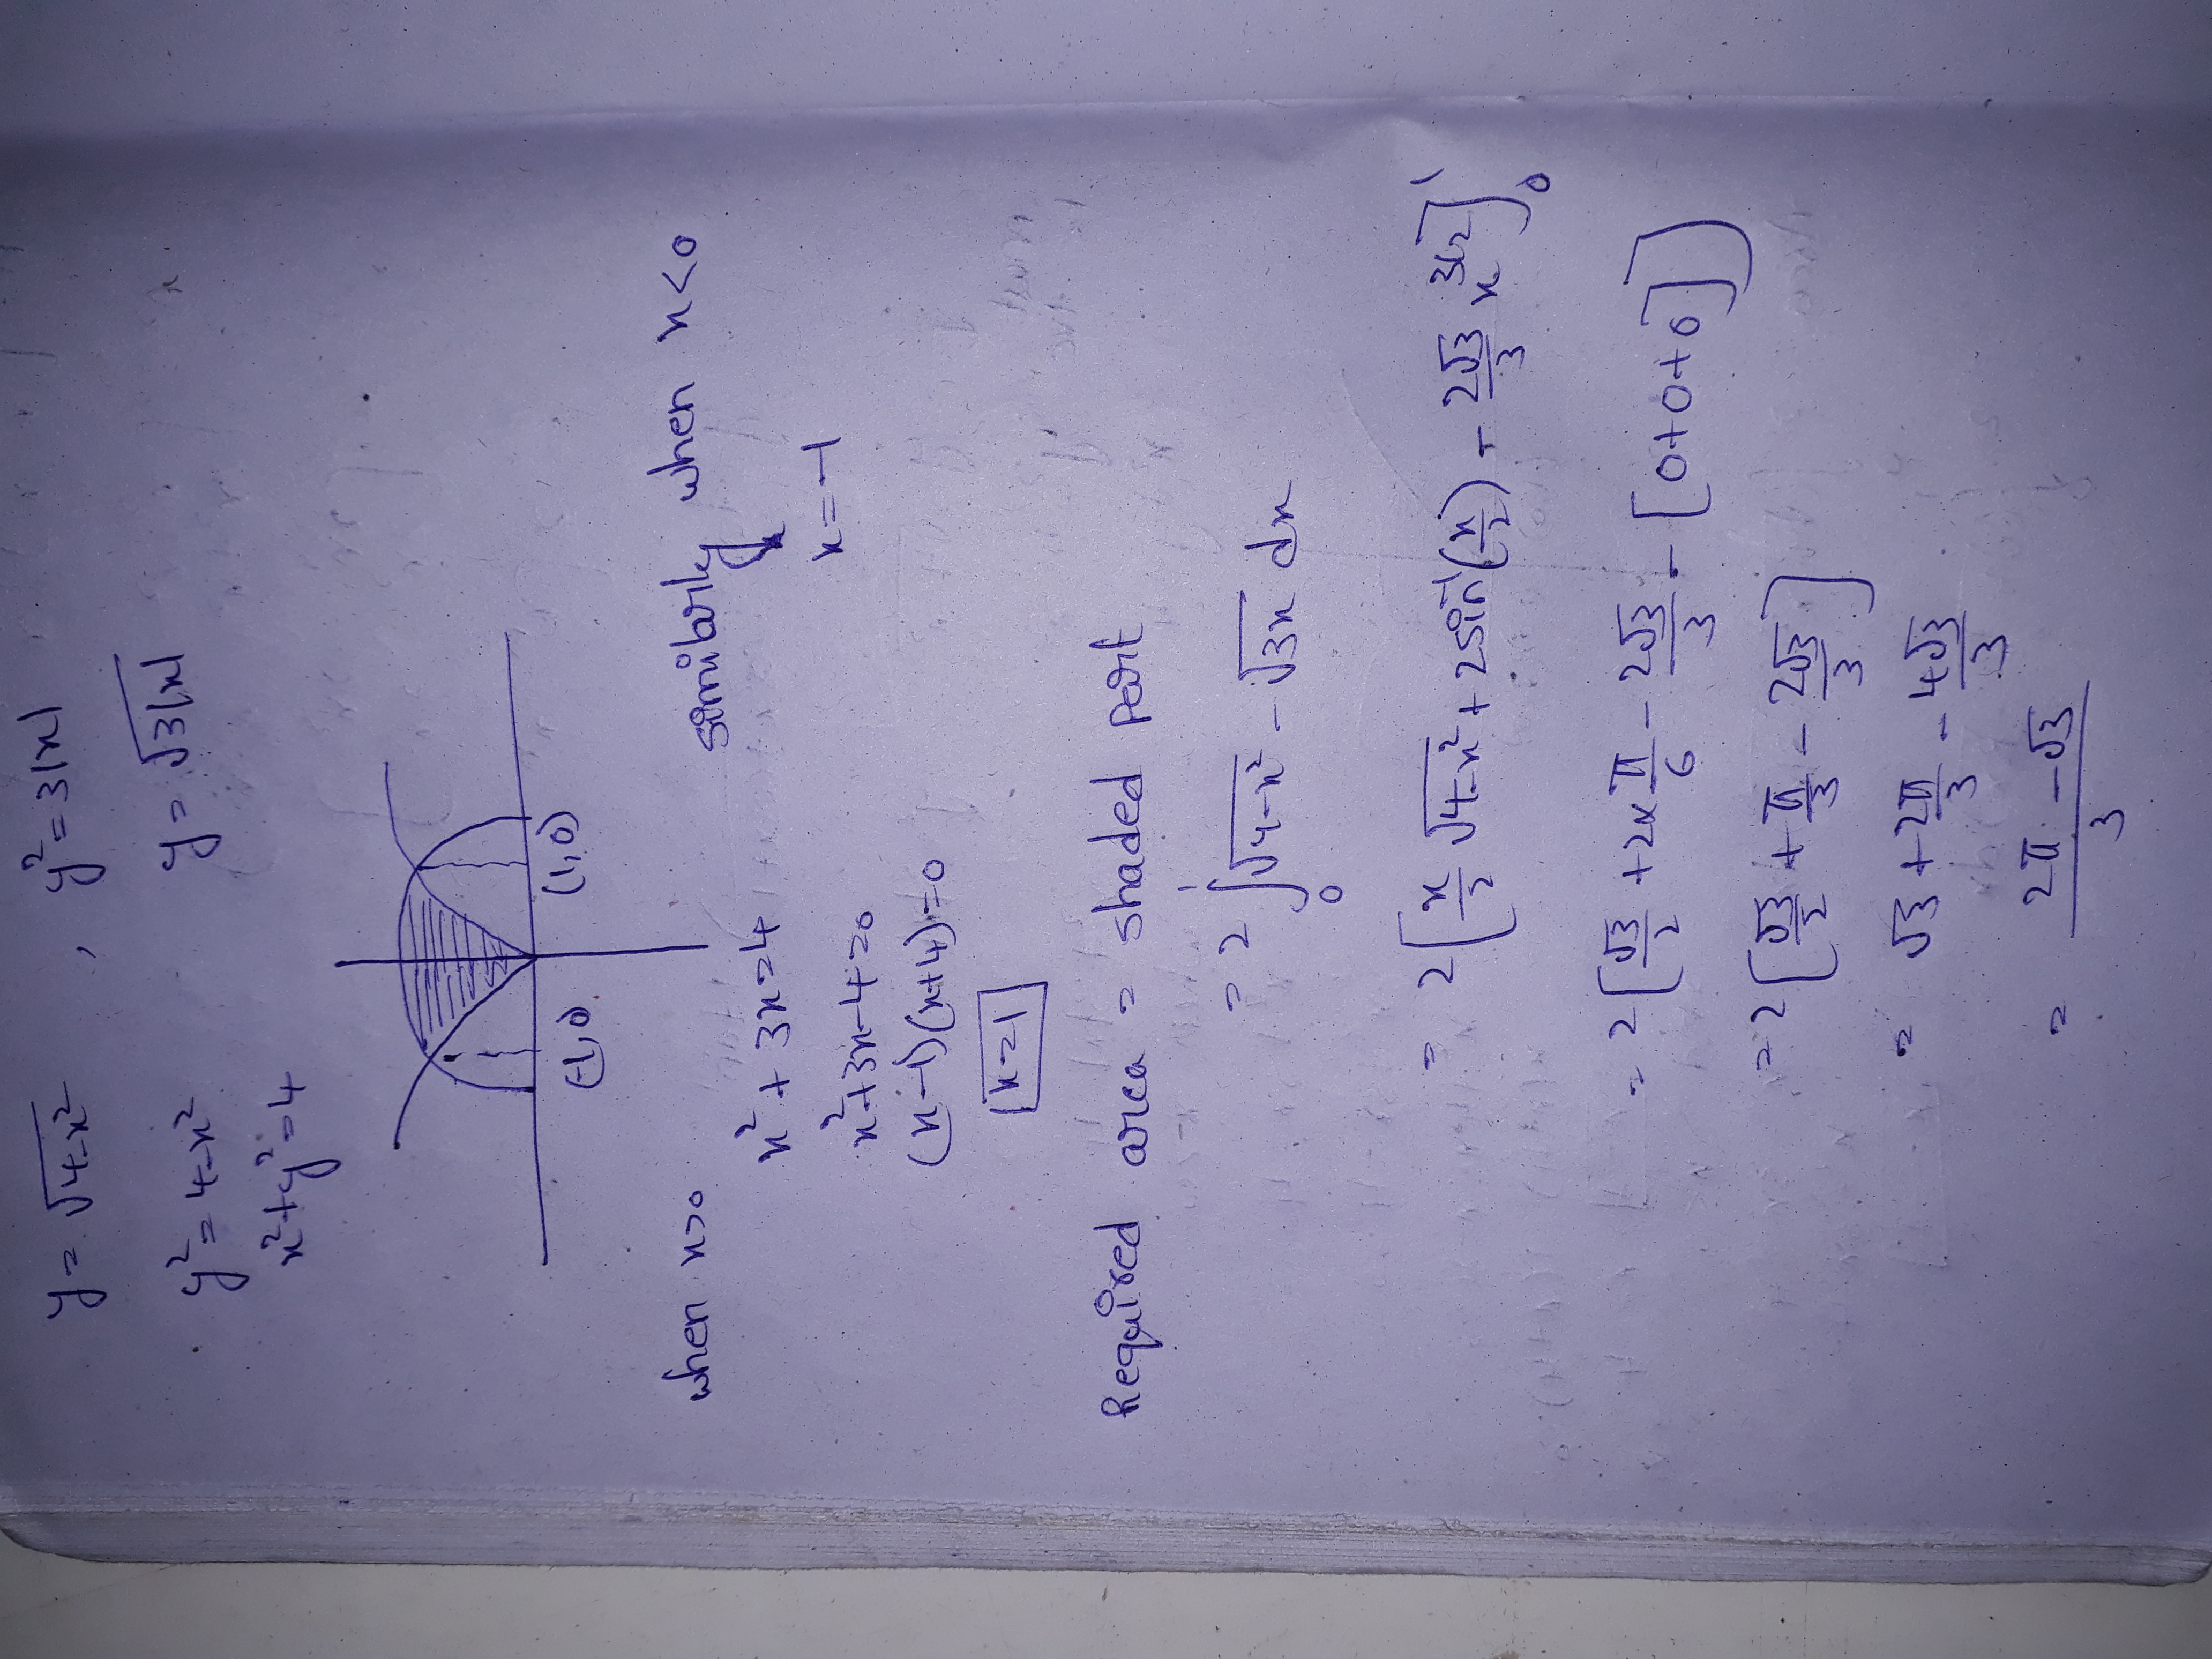 y = √(4-x²) , y² = 3|x|
y² = 4-x² y = √(3|x|)
x²+y² = 4
(-1,0) (1,0)
when x>0 similarly when x<0
x² + 3x = 4 x = -1
x²+3x-4=0
(x-1)(x+4)=0
x=1
Required area = shaded part
= 2 ∫₀¹ √(4-x²) - √(3x) dx
= 2[x/2 √(4-x²) + 2sin⁻¹(x/2) - 2√3/3 x^(3/2)]₀¹
= 2[√3/2 + 2×π/6 - 2√3/3 - [0+0+0]]
= 2[√3/2 + π/3 - 2√3/3]
= √3 + 2π/3 - 4√3/3
= (2π - √3)/3